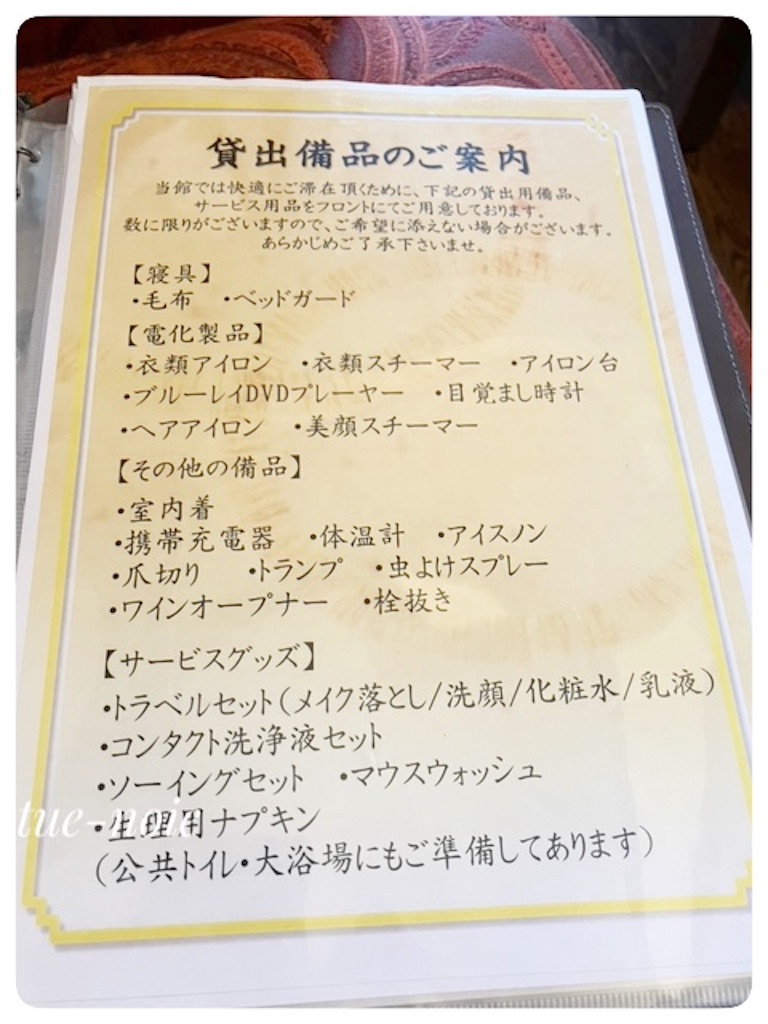 貸出備品のご案内
当館では快適にご滞在頂くために、下記の貸出用備品、
サービス用品をフロントにてご用意しております。
数に限りがございますので、ご希望に添えない場合がございます。
あらかじめご了承下さいませ。
【寝具】
・毛布　・ベッドガード
【電化製品】
・衣類アイロン　・衣類スチーマー　・アイロン台
・ブルーレイDVDプレーヤー　・目覚まし時計
・ヘアアイロン　・美顔スチーマー
【その他の備品】
・室内着
・携帯充電器　・体温計　・アイスノン
・爪切り　・トランプ　・虫よけスプレー
・ワインオープナー　・栓抜き
【サービスグッズ】
・トラベルセット(メイク落とし/洗顔/化粧水/乳液)
・コンタクト洗浄液セット
・ソーイングセット　・マウスウォッシュ
・生理用ナプキン
(公共トイレ・大浴場にもご準備してあります)